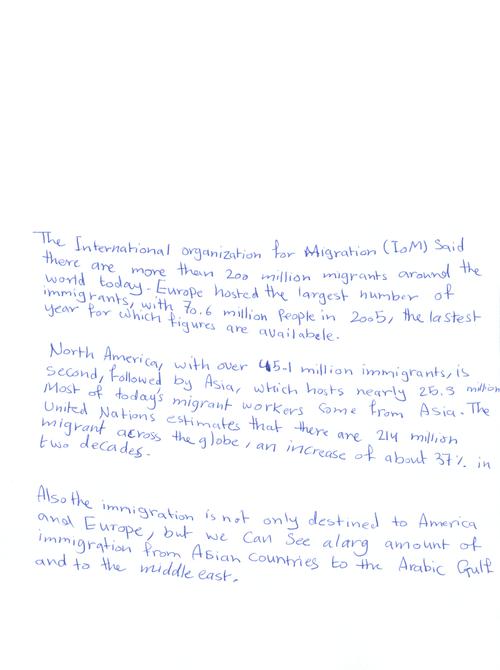 The International organization for Migration (IoM) Said
there are more than 200 million migrants around the
world today. Europe hosted the largest number of
immigrants, with 70.6 million People in 2005, the lastest
year for which figures are availabele.
North America, with over 45.1 million immigrants, is
second, followed by Asia, which hosts nearly 25.3 million
Most of today's migrant workers come from Asia. The
United Nations estimates that there are 214 million
migrant across the globe, an increase of about 37% in
two decades.
Also the imnigration is not only destined to America
and Europe, but we can See alarg amount of
immigration from Asian countries to the Arabic Gulf
and to the middle east.